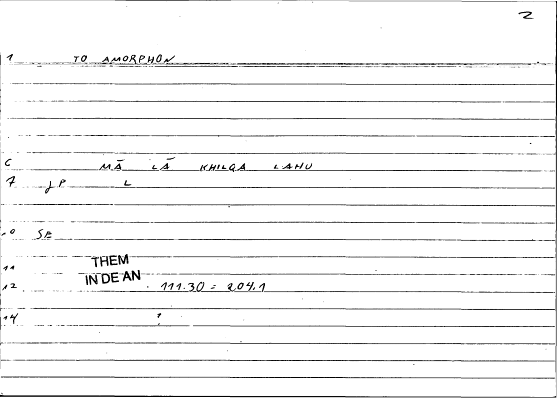 2
1 TO AMORPHON
C MĀ LĀ KHILQA LAHU
7 JP L
.0 SE
THEM
11 IN DE AN
12 . 111.30 = 204.1
14 ?